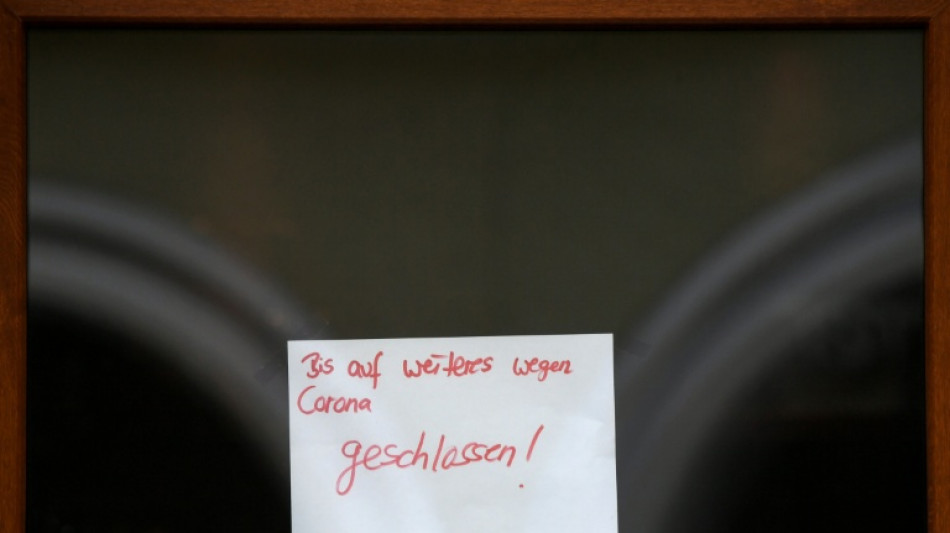 Bis auf weiteres wegen
Corona
geschlossen!